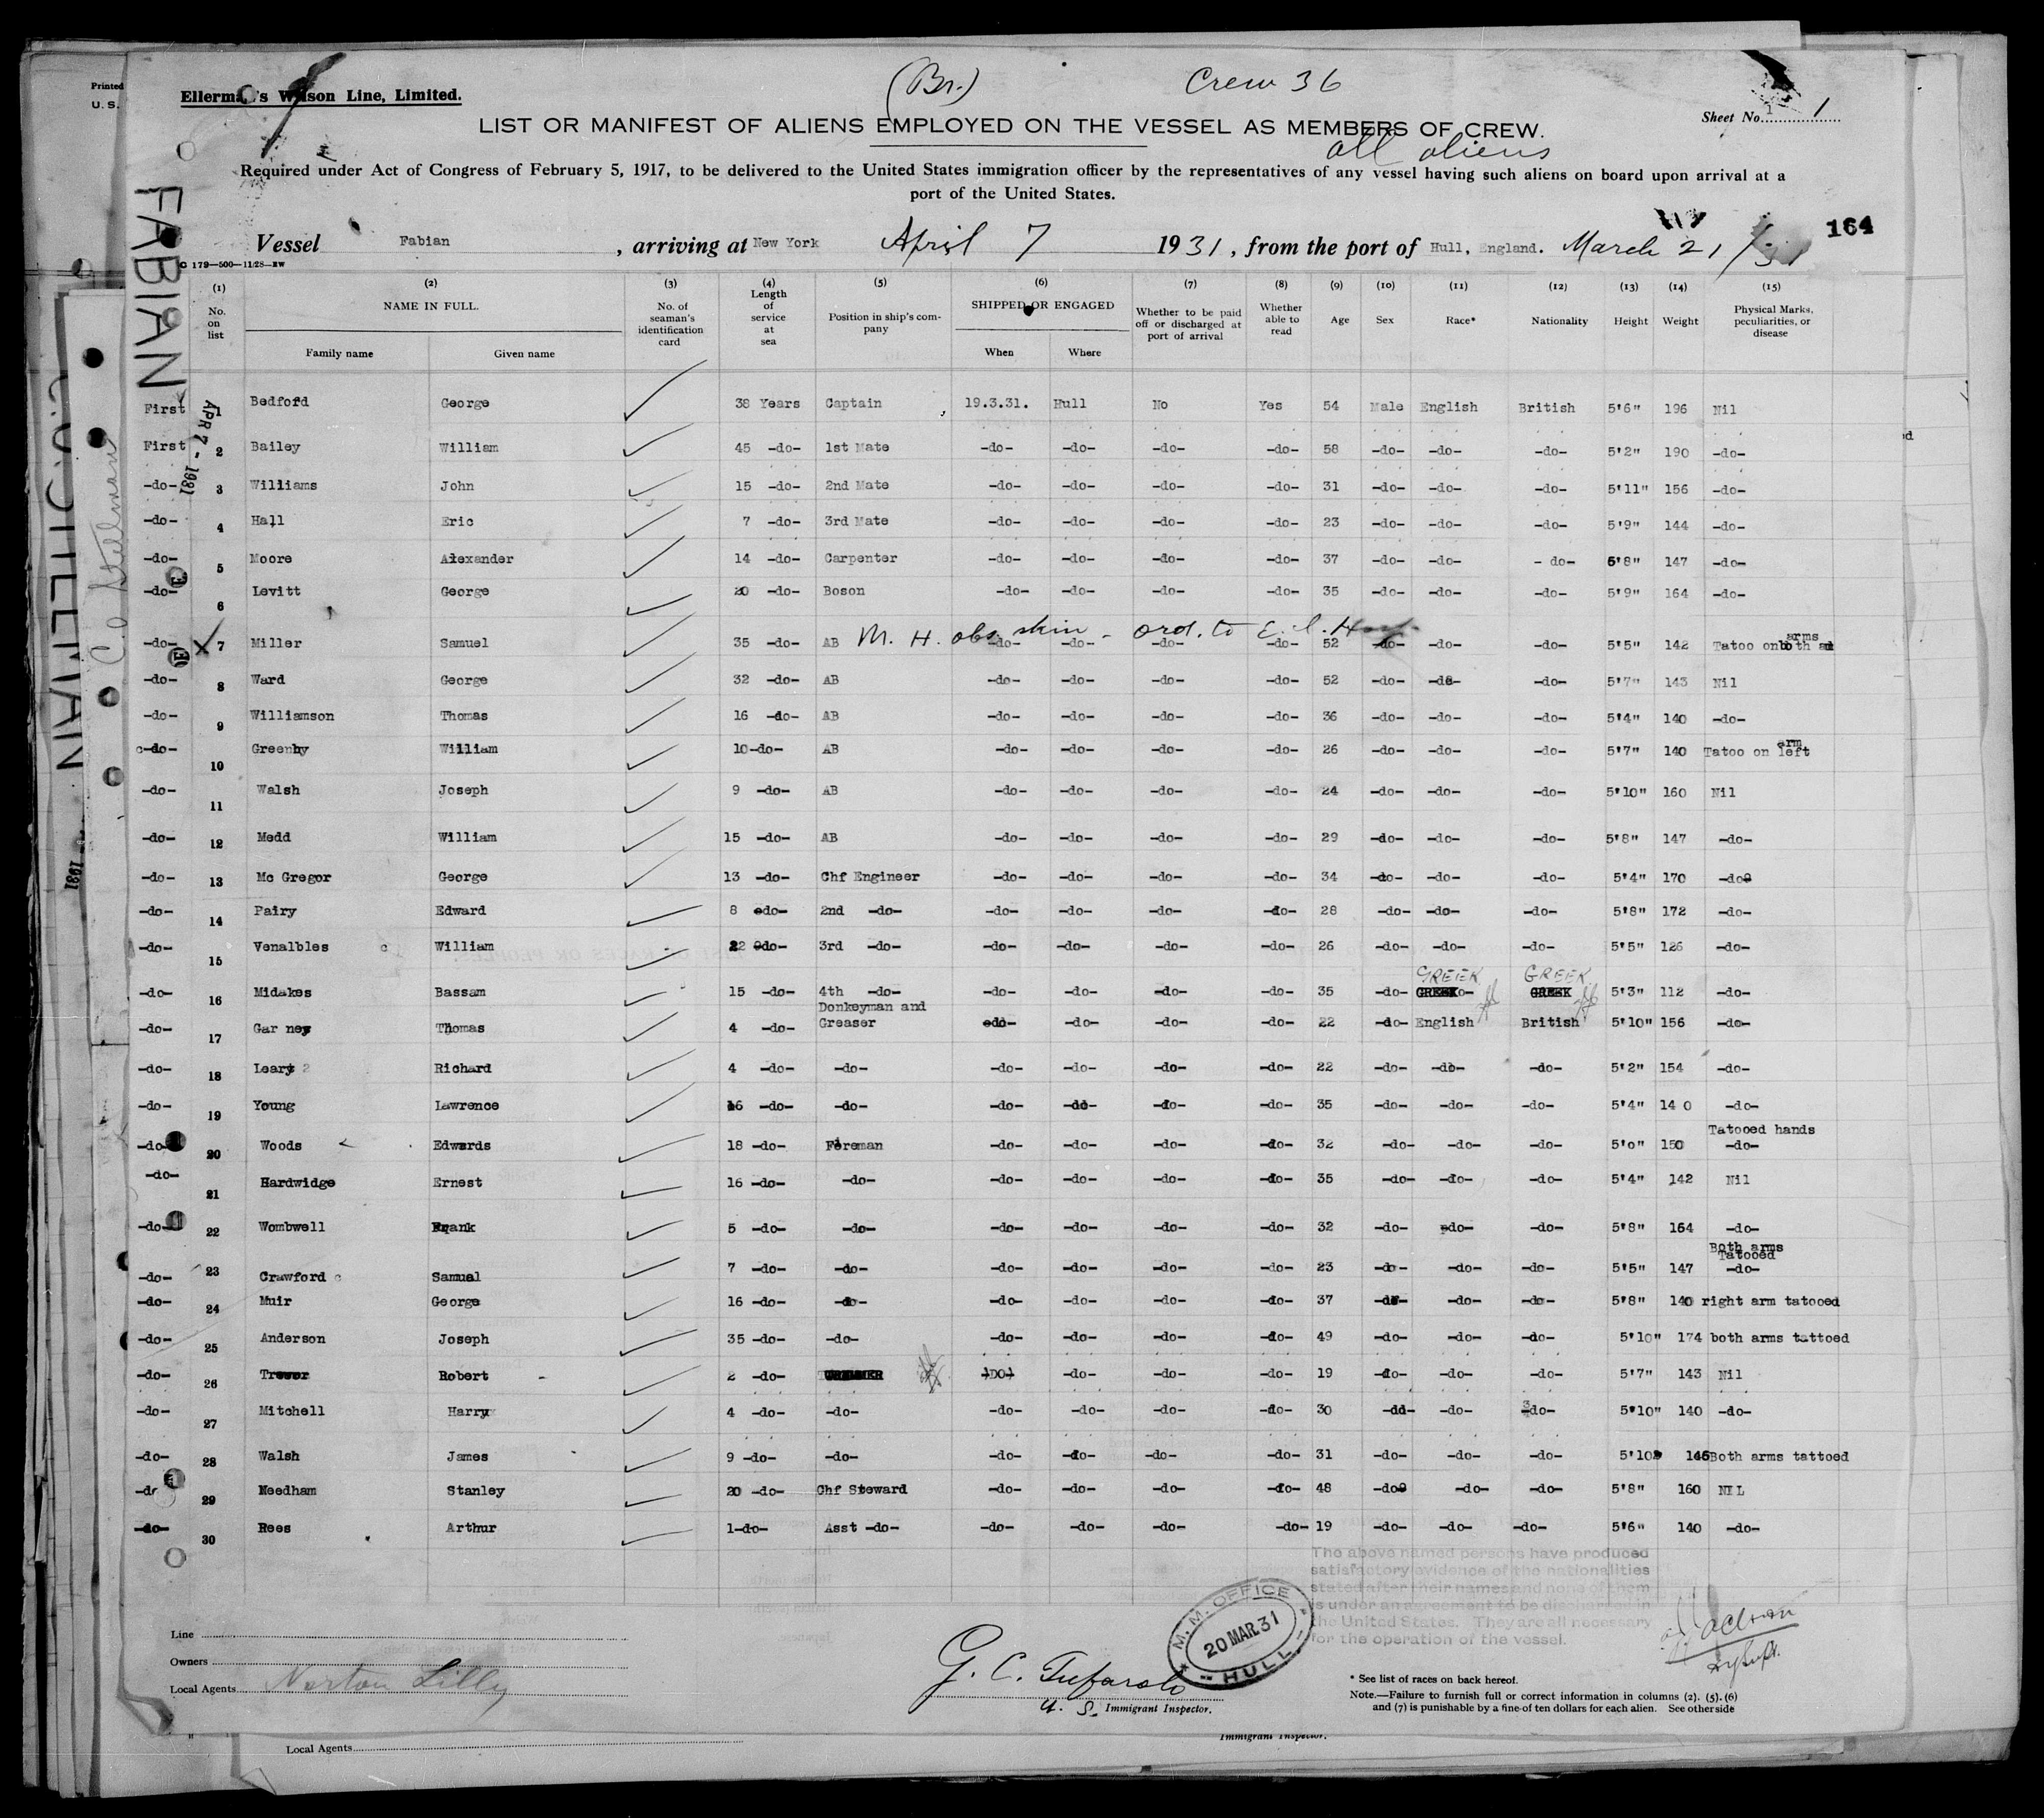 Printed
U. S.
(Br.)
Crew 36
Ellerman's Wilson Line, Limited.
Sheet No. 1
LIST OR MANIFEST OF ALIENS EMPLOYED ON THE VESSEL AS MEMBERS OF CREW.
all aliens
Required under Act of Congress of February 5, 1917, to be delivered to the United States immigration officer by the representatives of any vessel having such aliens on board upon arrival at a
port of the United States.
164
Vessel Fabian, arriving at New York April 7 1931, from the port of Hull, England. March 21/31
C 179—500—11/28—EW
FABIAN
APR 7 - 1931
C.O. Stillman
(1) (2) (3) (4) (5) (6) (7) (8) (9) (10) (11) (12) (13) (14) (15)
No. on list
NAME IN FULL.
Family name Given name
No. of seaman's identification card
Length of service at sea
Position in ship's company
SHIPPED OR ENGAGED
When Where
Whether to be paid off or discharged at port of arrival
Whether able to read
Age
Sex
Race*
Nationality
Height
Weight
Physical Marks, peculiarities, or disease
First 1 Bedford George 38 Years Captain 19.3.31. Hull No Yes 54 Male English British 5'6" 196 Nil
First 2 Bailey William 45 -do- 1st Mate -do- -do- -do- -do- 58 -do- -do- -do- 5'2" 190 -do-
-do- 3 Williams John 15 -do- 2nd Mate -do- -do- -do- -do- 31 -do- -do- -do- 5'11" 156 -do-
-do- 4 Hall Eric 7 -do- 3rd Mate -do- -do- -do- -do- 23 -do- -do- -do- 5'9" 144 -do-
-do- 5 Moore Alexander 14 -do- Carpenter -do- -do- -do- -do- 37 -do- -do- - do- 5'8" 147 -do-
-do- 6 Levitt George 20 -do- Boson -do- -do- -do- -do- 35 -do- -do- -do- 5'9" 164 -do-
M. H. obs. skin - ord. to E. I. Hosp
-do- 7 Miller Samuel 35 -do- AB -do- -do- -do- -do- 52 -do- -do- -do- 5'5" 142 Tatoo on both arms
-do- 8 Ward George 32 -do- AB -do- -do- -do- -do- 52 -do- -do- -do- 5'7" 143 Nil
-do- 9 Williamson Thomas 16 -do- AB -do- -do- -do- -do- 36 -do- -do- -do- 5'4" 140 -do-
-do- 10 Greenby William 10-do- AB -do- -do- -do- -do- 26 -do- -do- -do- 5'7" 140 Tatoo on left arm
-do- 11 Walsh Joseph 9 -do- AB -do- -do- -do- -do- 24 -do- -do- -do- 5'10" 160 Nil
-do- 12 Medd William 15 -do- AB -do- -do- -do- -do- 29 -do- -do- -do- 5'8" 147 -do-
-do- 13 Mc Gregor George 13 -do- Chf Engineer -do- -do- -do- -do- 34 -do- -do- -do- 5'4" 170 -do-
-do- 14 Pairy Edward 8 -do- 2nd -do- -do- -do- -do- -do- 28 -do- -do- -do- 5'8" 172 -do-
-do- 15 Venalbles William 22 -do- 3rd -do- -do- -do- -do- -do- 26 -do- -do- -do- 5'5" 126 -do-
GREEK GREEK
-do- 16 Midakes Bassam 15 -do- 4th -do- -do- -do- -do- -do- 35 -do- GREEK GREEK 5'3" 112 -do-
-do- 17 Gar ney Thomas 4 -do- Donkeyman and Greaser -do- -do- -do- -do- 22 -do- English British 5'10" 156 -do-
-do- 18 Leary Richard 4 -do- -do- -do- -do- -do- -do- 22 -do- -do- -do- 5'2" 154 -do-
-do- 19 Young Lawrence 16 -do- -do- -do- -do- -do- -do- 35 -do- -do- -do- 5'4" 14 0 -do-
-do- 20 Woods Edwards 18 -do- Fireman -do- -do- -do- -do- 32 -do- -do- -do- 5'0" 150 Tatooed hands -do-
-do- 21 Hardwidge Ernest 16 -do- -do- -do- -do- -do- -do- 35 -do- -do- -do- 5'4" 142 Nil
-do- 22 Wombwell Frank 5 -do- -do- -do- -do- -do- -do- 32 -do- -do- -do- 5'8" 164 -do-
-do- 23 Crawford Samual 7 -do- -do- -do- -do- -do- -do- 23 -do- -do- -do- 5'5" 147 Both arms Tatooed -do-
-do- 24 Muir George 16 -do- -do- -do- -do- -do- -do- 37 -do- -do- -do- 5'8" 140 right arm tatooed
-do- 25 Anderson Joseph 35 -do- -do- -do- -do- -do- -do- 49 -do- -do- -do- 5'10" 174 both arms tattoed
-do- 26 Robert 2 -do- -DO- -do- -do- -do- 19 -do- -do- -do- 5'7" 143 Nil
-do- 27 Mitchell Harry 4 -do- -do- -do- -do- -do- -do- 30 -do- -do- -do- 5'10" 140 -do-
-do- 28 Walsh James 9 -do- -do- -do- -do- -do- -do- 31 -do- -do- -do- 5'10 Both arms tattoed
-do- 29 Needham Stanley 20 -do- Chf Steward -do- -do- -do- -do- 48 -do- -do- -do- 5'8" 160 NIL
-do- 30 Rees Arthur 1-do- Asst -do- -do- -do- -do- -do- 19 -do- -do- -do- 5'6" 140 -do-
The above named persons have produced
satisfactory evidence of the nationalities
stated after their names and none of them
is under an agreement to be discharged in
the United States. They are all necessary
for the operation of the vessel.
M. M. OFFICE
20 MAR.31
HULL
Line
Owners
Local Agents Norton Lilly
G. C. Tufarolo
U. S. Immigrant Inspector.
* See list of races on back hereof.
Note.—Failure to furnish full or correct information in columns (2). (5). (6)
and (7) is punishable by a fine of ten dollars for each alien. See other side
Local Agents
Immigrant Inspector.